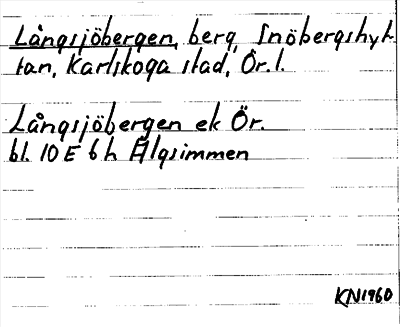 Långsjöbergen, berg, Snöbergshyt-
tan, Karlskoga stad, Ör.l.
Långsjöbergen ek Ör.
bl. 10 E 6 h Älgsimmen
KN1960